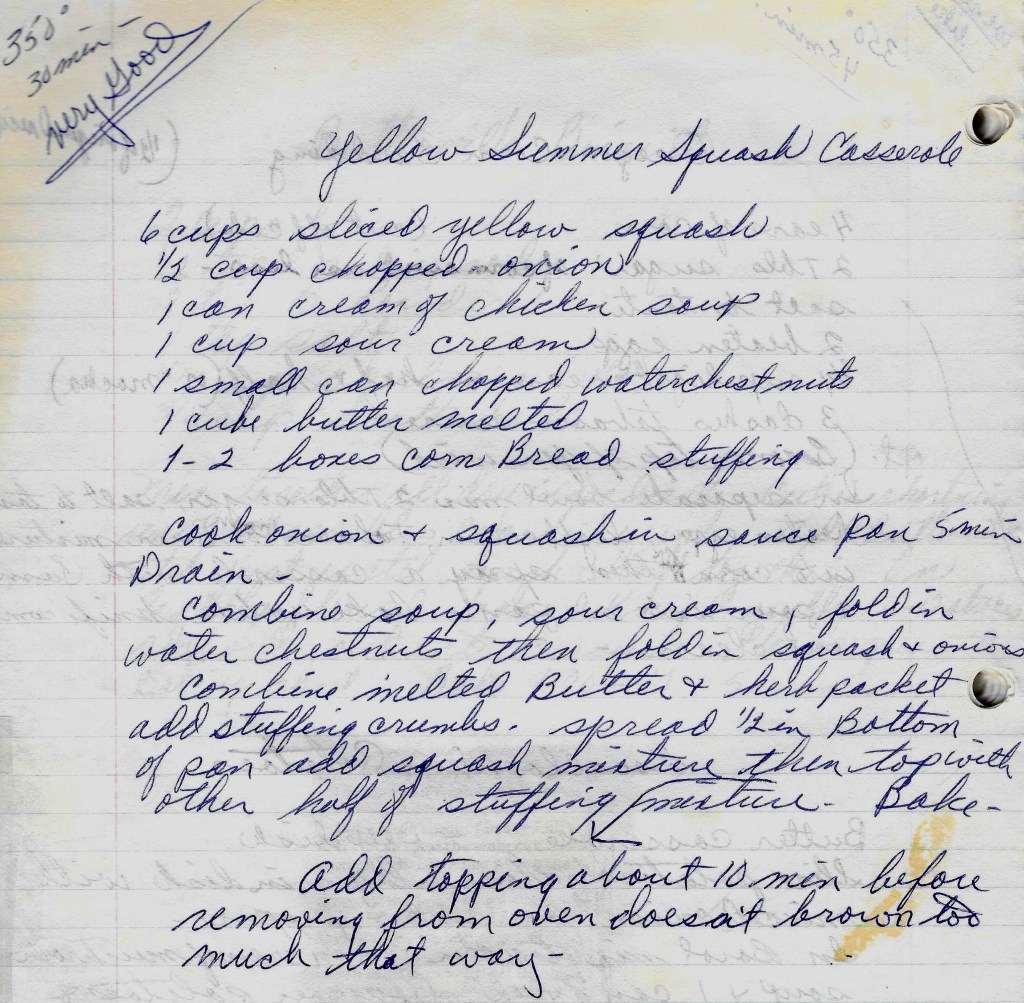 350°
30 min -
Very Good
Yellow Summer Squash Casserole
6 cups sliced yellow squash
1/2 cup chopped onion
1 can cream of chicken soup
1 cup sour cream
1 small can chopped waterchestnuts
1 cube butter melted
1-2 boxes corn Bread stuffing
Cook onion + squash in sauce pan 5 min
Drain -
Combine soup, sour cream, fold in
water chestnuts then fold in squash + onions
Combine melted Butter + herb packet
add stuffing crumbs. spread 1/2 in Bottom
of pan add squash mixture then top with
other half of stuffing mixture - Bake -
Add topping about 10 min before
removing from oven doesn't brown too
much that way -